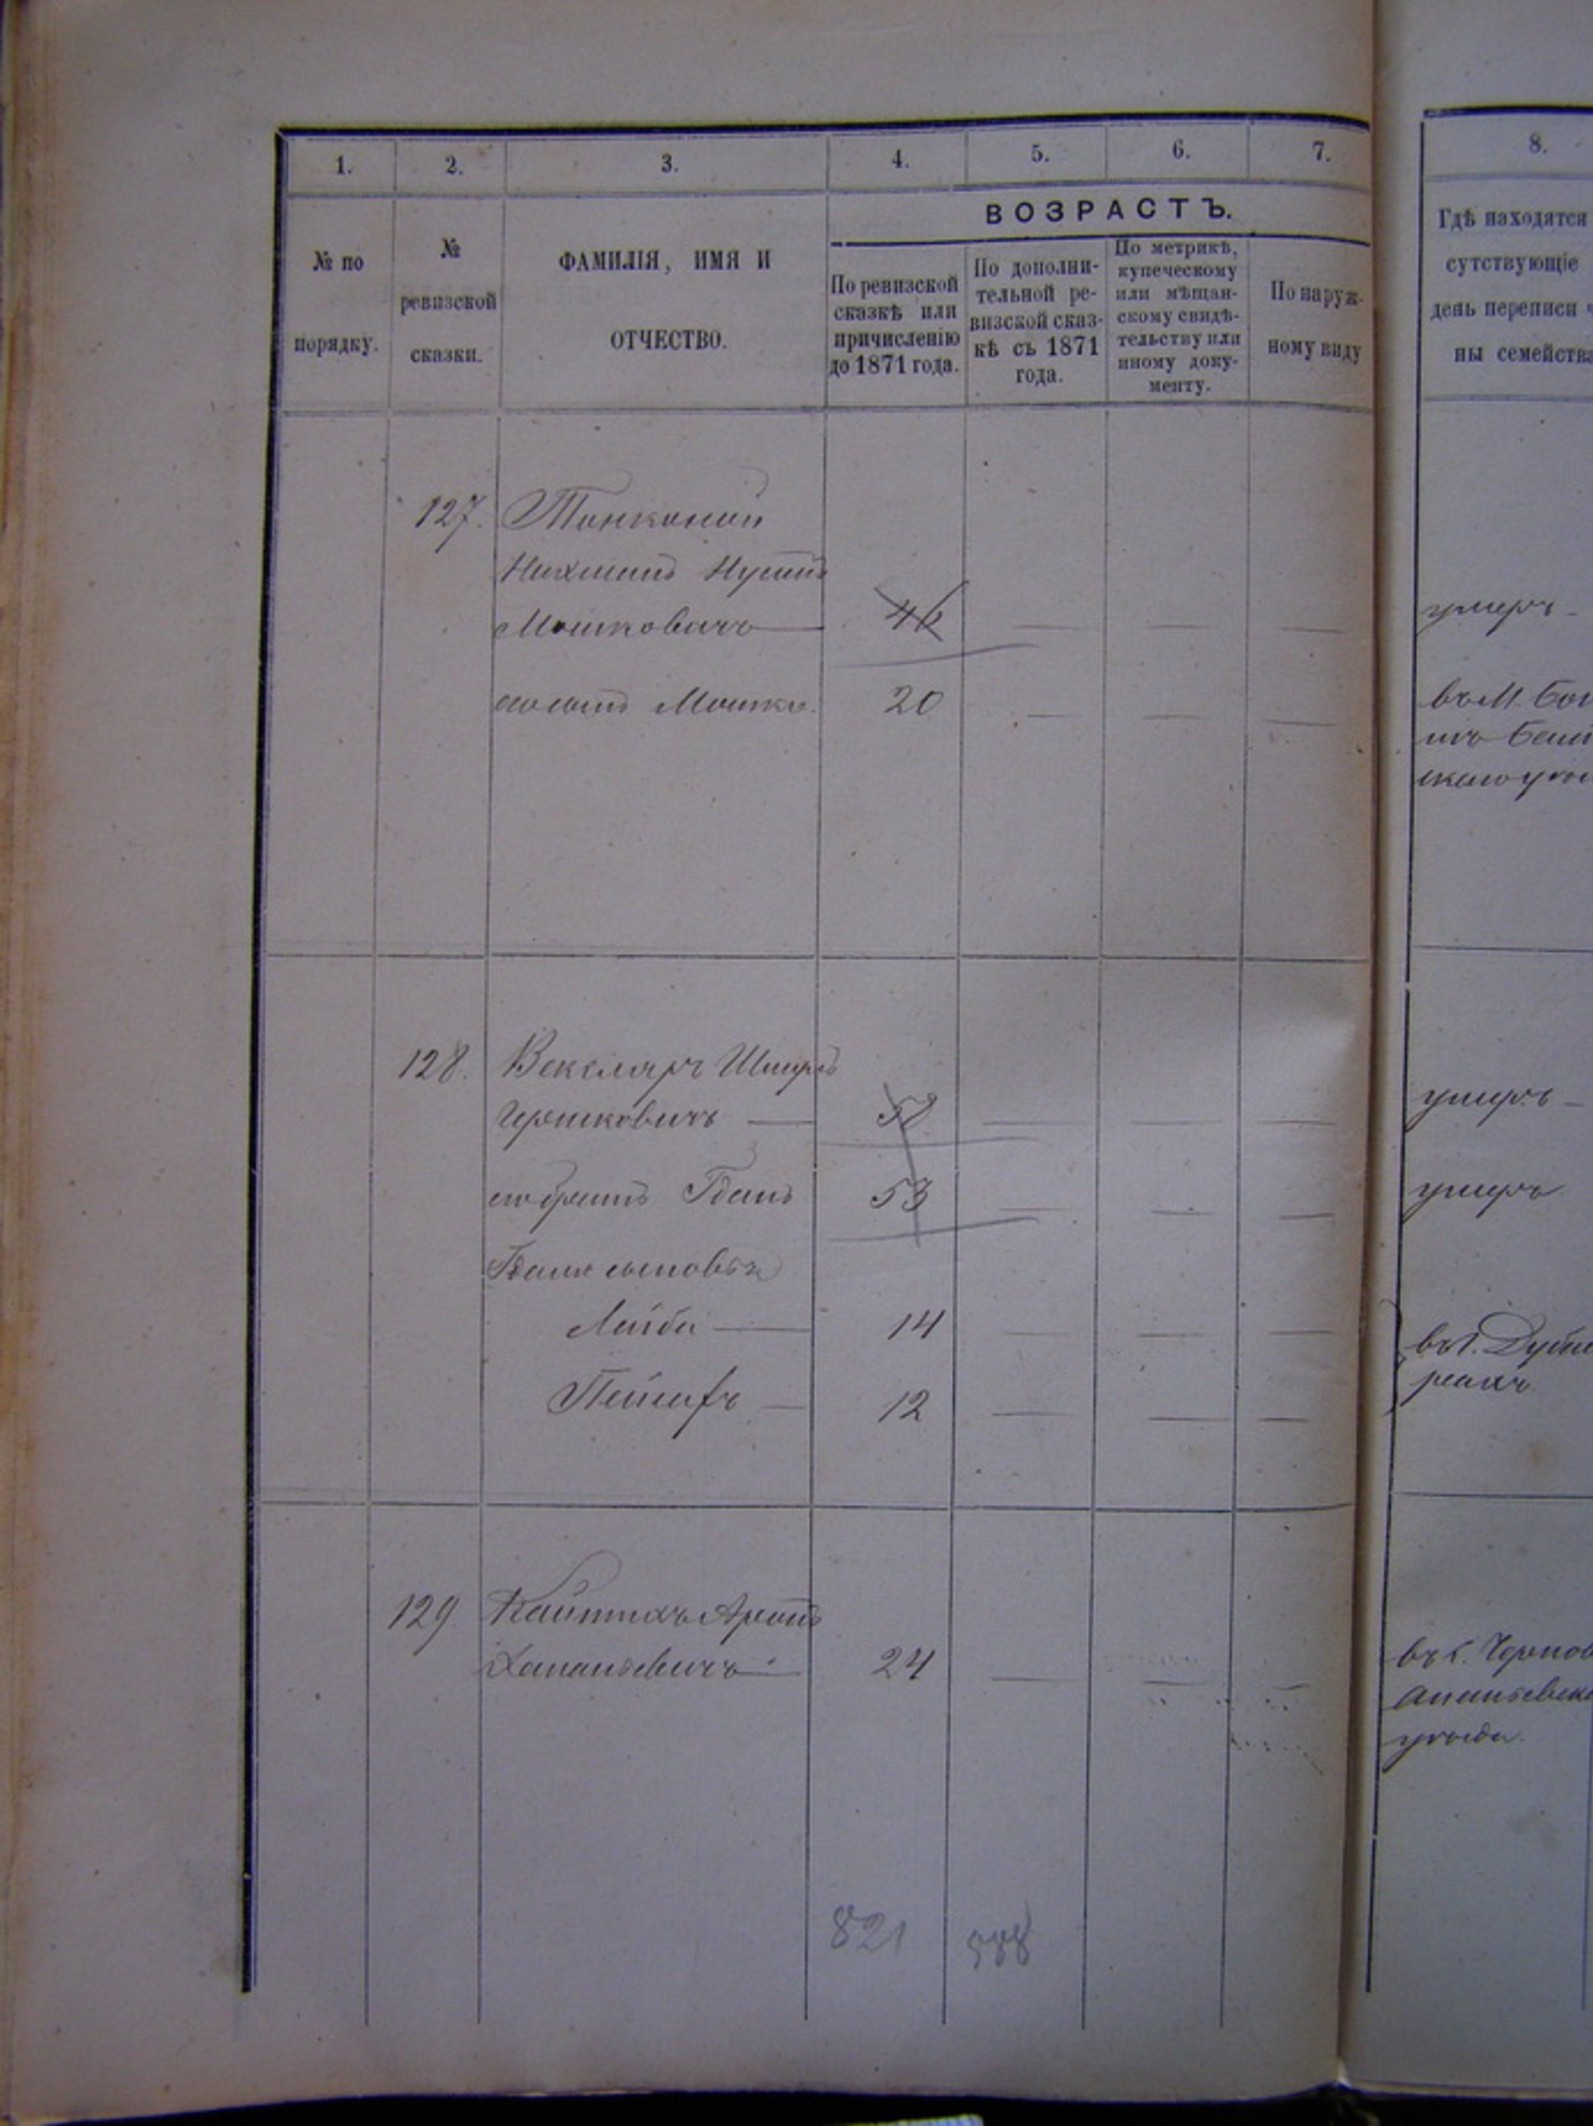 1. 2. 3. 4. 5. 6. 7. 8.
ВОЗРАСТЪ.
№ по
порядку.
№
ревизской
сказки.
ФАМИЛІЯ, ИМЯ И
ОТЧЕСТВО.
По ревизской
сказкѣ или
причисленію
до 1871 года.
По дополни-
тельной ре-
визской сказ-
кѣ съ 1871
года.
По метрикѣ,
купеческому
или мѣщан-
скому свидѣ-
тельству или
иному доку-
менту.
По наруж-
ному виду
Гдѣ находятся
сутствующіе
день переписи ч
ны семейства
127. Тонконой
Нахманъ Нусинъ
Мошковичъ — 46 — — — умеръ —
его сынъ Мошко. 20 — — —
въ М.
128. Векслярь Шмуль
Гершковичъ — 57 — — — умеръ —
его братъ Гданъ 53 — — — умеръ
Гдаля сыновья
Лейба — 14 — — —
Пейсехъ — 12 — — —
въ г.
129 Аронъ
Хананьевичъ — 24 — — —
въ с. Чернов
Ананьевск
уѣзда.
821 588